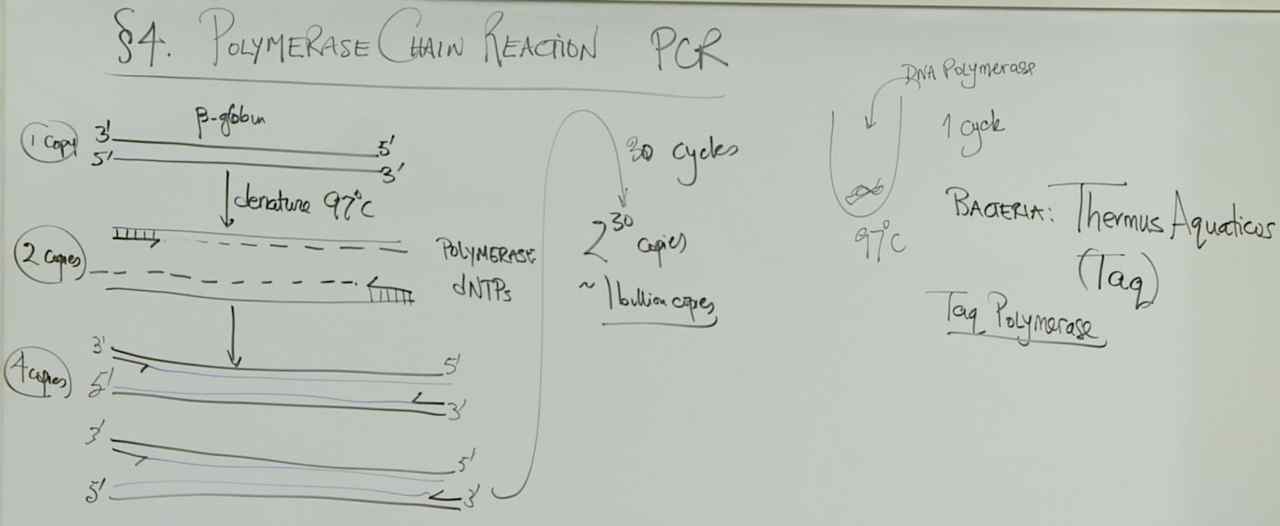 §4. POLYMERASE CHAIN REACTION PCR
1 copy
β-globin
3' 5'
5' 3'
denature 97°C
2 copies
POLYMERASE
dNTPs
4 copies
3' 5'
5' 3'
3' 5'
5' 3'
30 cycles
2^30 copies
~ 1 billion copies
DNA Polymerase
1 cycle
97°C
BACTERIA: Thermus Aquaticus
(Taq)
Taq Polymerase